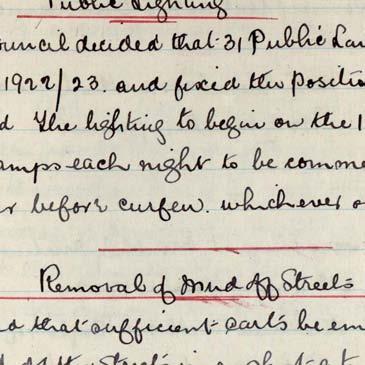 Public Lighting
ouncil decided that 31 Public La
1922/23. and fixed the positi
d The lighting to begin on the 1
amps each night to be comme
r before curfew. whichever
Removal of mud off Streets
d that sufficient carts be em